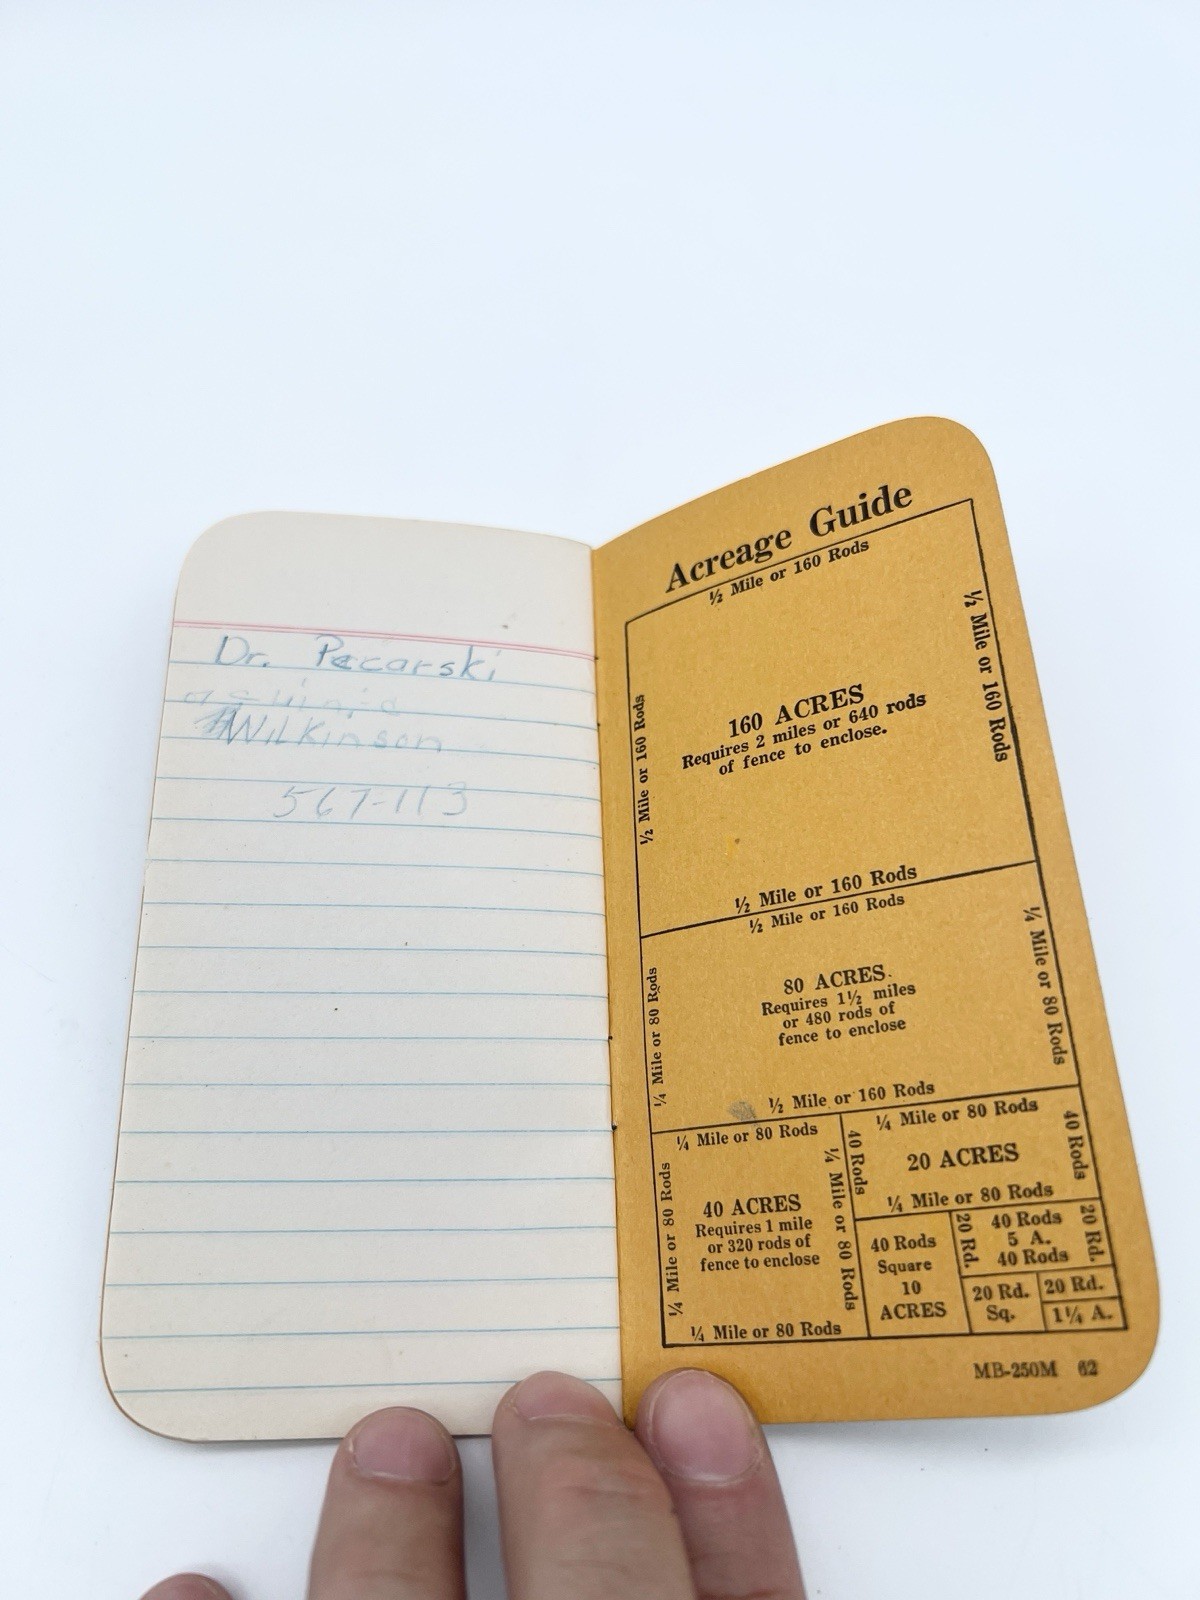 Dr. Pecarski
Wilkinson
567-113
Acreage Guide
½ Mile or 160 Rods
½ Mile or 160 Rods
160 ACRES
Requires 2 miles or 640 rods
of fence to enclose.
½ Mile or 160 Rods
½ Mile or 160 Rods
½ Mile or 160 Rods
¼ Mile or 80 Rods
80 ACRES.
Requires 1½ miles
or 480 rods of
fence to enclose
¼ Mile or 80 Rods
½ Mile or 160 Rods
¼ Mile or 80 Rods
¼ Mile or 80 Rods
40 ACRES
Requires 1 mile
or 320 rods of
fence to enclose
¼ Mile or 80 Rods
¼ Mile or 80 Rods
¼ Mile or 80 Rods
40 Rods
20 ACRES
40 Rods
¼ Mile or 80 Rods
40 Rods
Square
10
ACRES
20 Rd.
40 Rods
5 A.
40 Rods
20 Rd.
20 Rd.
Sq.
20 Rd.
1¼ A.
MB-250M 62